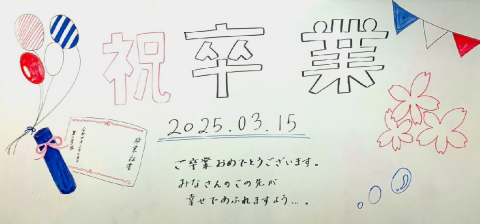 祝卒業
2025.03.15
卒業証書
ご卒業おめでとうございます。
みなさんのこの先が
幸せであふれますよう…。